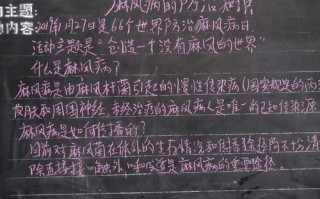 主题:
内容
麻风病的防治知识
2019年1月27日是66个世界防治麻风病日
活动主题是:"创造一个没有麻风的世界"
什么是麻风病?
麻风病是由麻风杆菌引起的慢性传染病(国家规定的丙
皮肤和周围神经,未经治疗的麻风病人是唯一的已知传染源
麻风病是如何传播的?
目前对麻风菌在体外的生存情况和传播途径尚不十分清
除直接接触外,呼吸道是麻风病的重要途径。